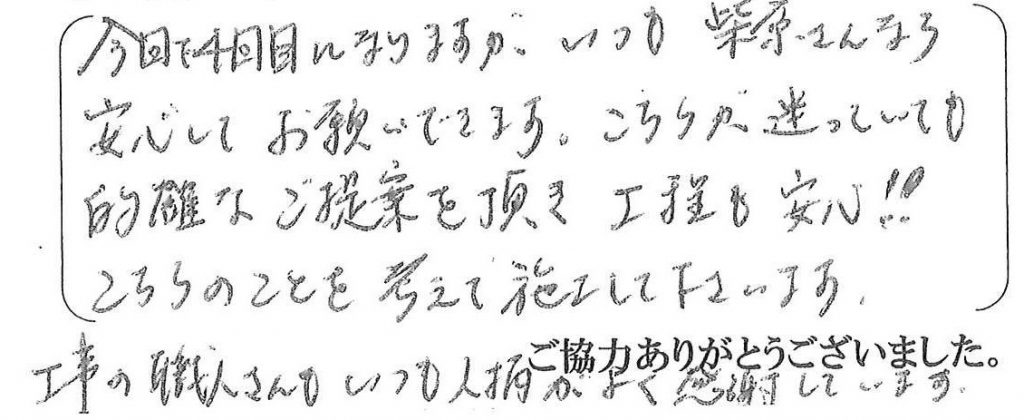 今回で4回目になりますが、いつも柴原さんなら
安心してお願いできます。こちらが迷っていても
的確なご提案を頂き工程も安心!!
こちらのことを考えて施工して下さいます。
ご協力ありがとうございました。
工事の職人さんもいつも人柄がよく感謝しています。